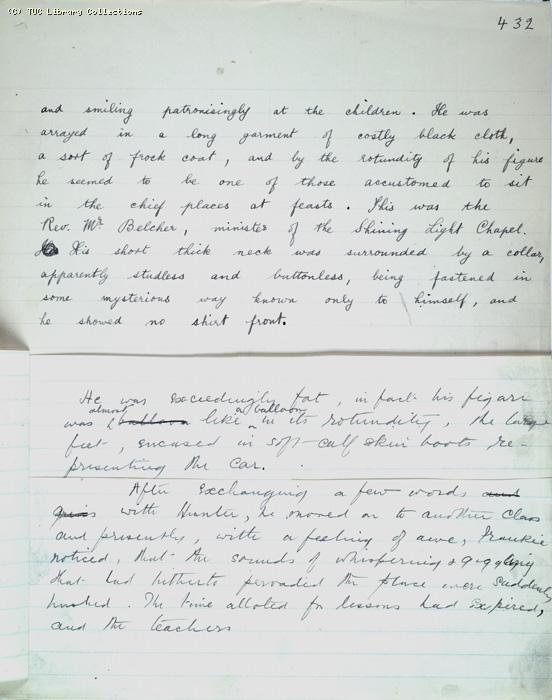 (C) TUC Library Collections
432
and smiling patronisingly at the children. He was
arrayed in a long garment of costly black cloth,
a sort of frock coat, and by the rotundity of his figure
he seemed to be one of those accustomed to sit
in the chief places at feasts. This was the
Rev. Mr. Belcher, minister of the Shining Light Chapel.
His short thick neck was surrounded by a collar,
apparently studless and buttonless, being fastened in
some mysterious way known only to himself, and
he showed no shirt front.
He was exceedingly fat, in fact his figure
almost a balloon
was balloon like in its rotundity, the large
feet, encased in soft-calf skin boots re-
presenting the car.
After exchanging a few words and
with Hunter, he moved on to another class
and presently, with a feeling of awe, Frankie
noticed, that the sounds of whispering & giggling
that had hitherto pervaded the place were suddenly
hushed. The time alloted for lessons had expired,
and the teachers